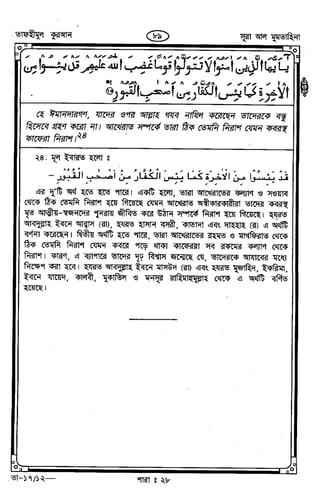 তাফহীমুল কুরআন
৮৯
সূরা আল মুমতাহিনা
يٰۤاَيُّهَا الَّذِيْنَ اٰمَنُوْا لَا تَتَوَلَّوْا قَوْمًا غَضِبَ اللّٰهُ عَلَيْهِمْ قَدْ يَئِسُوْا مِنَ
الْاٰخِرَةِ كَمَا يَئِسَ الْكُفَّارُ مِنْ اَصْحٰبِ الْقُبُوْرِ
হে ঈমানদারগণ, যাদের ওপর আল্লাহ গযব নাযিল করেছেন তাদেরকে বন্ধু
হিসেবে গ্রহণ করো না। আখেরাত সম্পর্কে তারা ঠিক তেমনি নিরাশ যেমন কবরস্থ
কাফেররা নিরাশ।২৪
২৪. মূল ইবারত হলো ঃ
قَدْ يَئِسُوْا مِنَ الْاٰخِرَةِ كَمَا يَئِسَ الْكُفَّارُ مِنْ اَصْحٰبِ الْقُبُوْرِ -
এর দু’টি অর্থ হতে হতে পারে। একটি হলো, তারা আখেরাতের কল্যাণ ও সওয়াব
থেকে ঠিক তেমনি নিরাশ হয়ে গিয়েছে যেমন আখেরাত অস্বীকারকারীরা তাদের কবরস্থ
মৃত আত্মীয়-স্বজনদের পুনরায় জীবিত করে উঠান সম্পর্কে নিরাশ হয়ে গিয়েছে। হযরত
আবদুল্লাহ ইবনে আব্বাস (রা), হযরত হাসান বসরী, কাতাদা এবং দাহহাক (র) এ অর্থটি
বর্ণনা করেছেন। দ্বিতীয় অর্থটি হতে পারে, তারা আখেরাতের রহমত ও মাগফিরাত থেকে
ঠিক তেমনি নিরাশ যেমন কবরে পড়ে থাকা কাফেররা সব রকমের কল্যাণ থেকে
নিরাশ। কারণ, এ ব্যাপারে তাদের দৃঢ় বিশ্বাস জন্মেছে যে, তাদেরকে আযাবের মধ্যে
নিক্ষেপ করা হবে। হযরত আবদুল্লাহ ইবনে মাসউদ (রা) এবং হযরত মুজাহিদ, ইকরিমা,
ইবনে যায়েদ, কালবী, মুকাতিল ও মনসূর রাহিমাহুমুল্লাহ থেকে এ অর্থটি বর্ণিত
হয়েছে।
তা-১৭/১২—
পারা ঃ ২৮